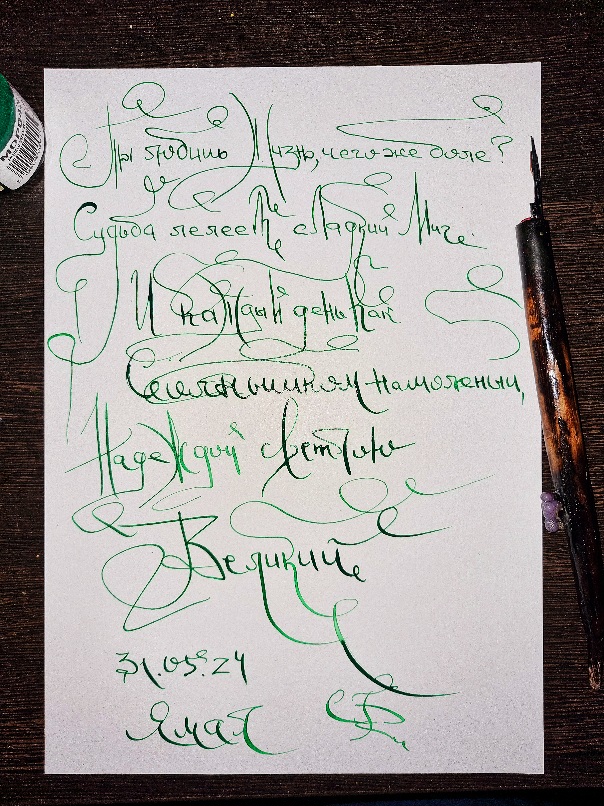 Ты любишь Жизнь, чего же боле?
Судьба лелеет сладкий Миг.
И каждый день как
намоленный,
Надеждой светлою
Великий
31.05.24